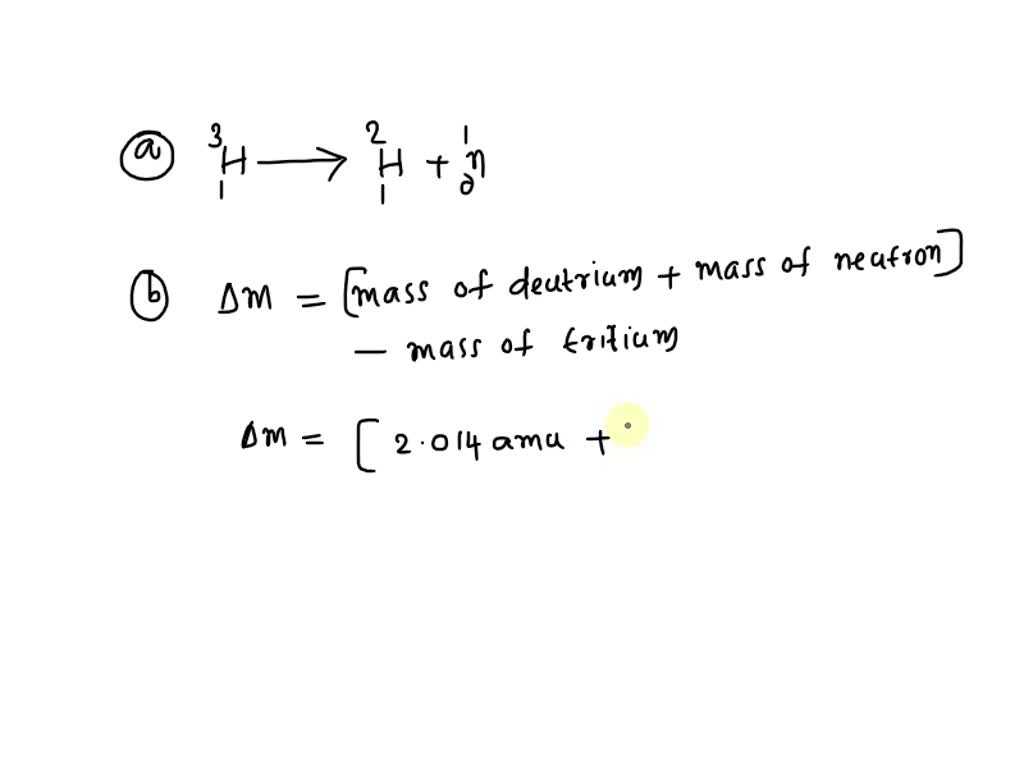 ⓐ ³₁H → ²₁H + ¹₀n
ⓑ Δm = [mass of deutrium + mass of neutron]
— mass of tritium
Δm = [2.014 amu +